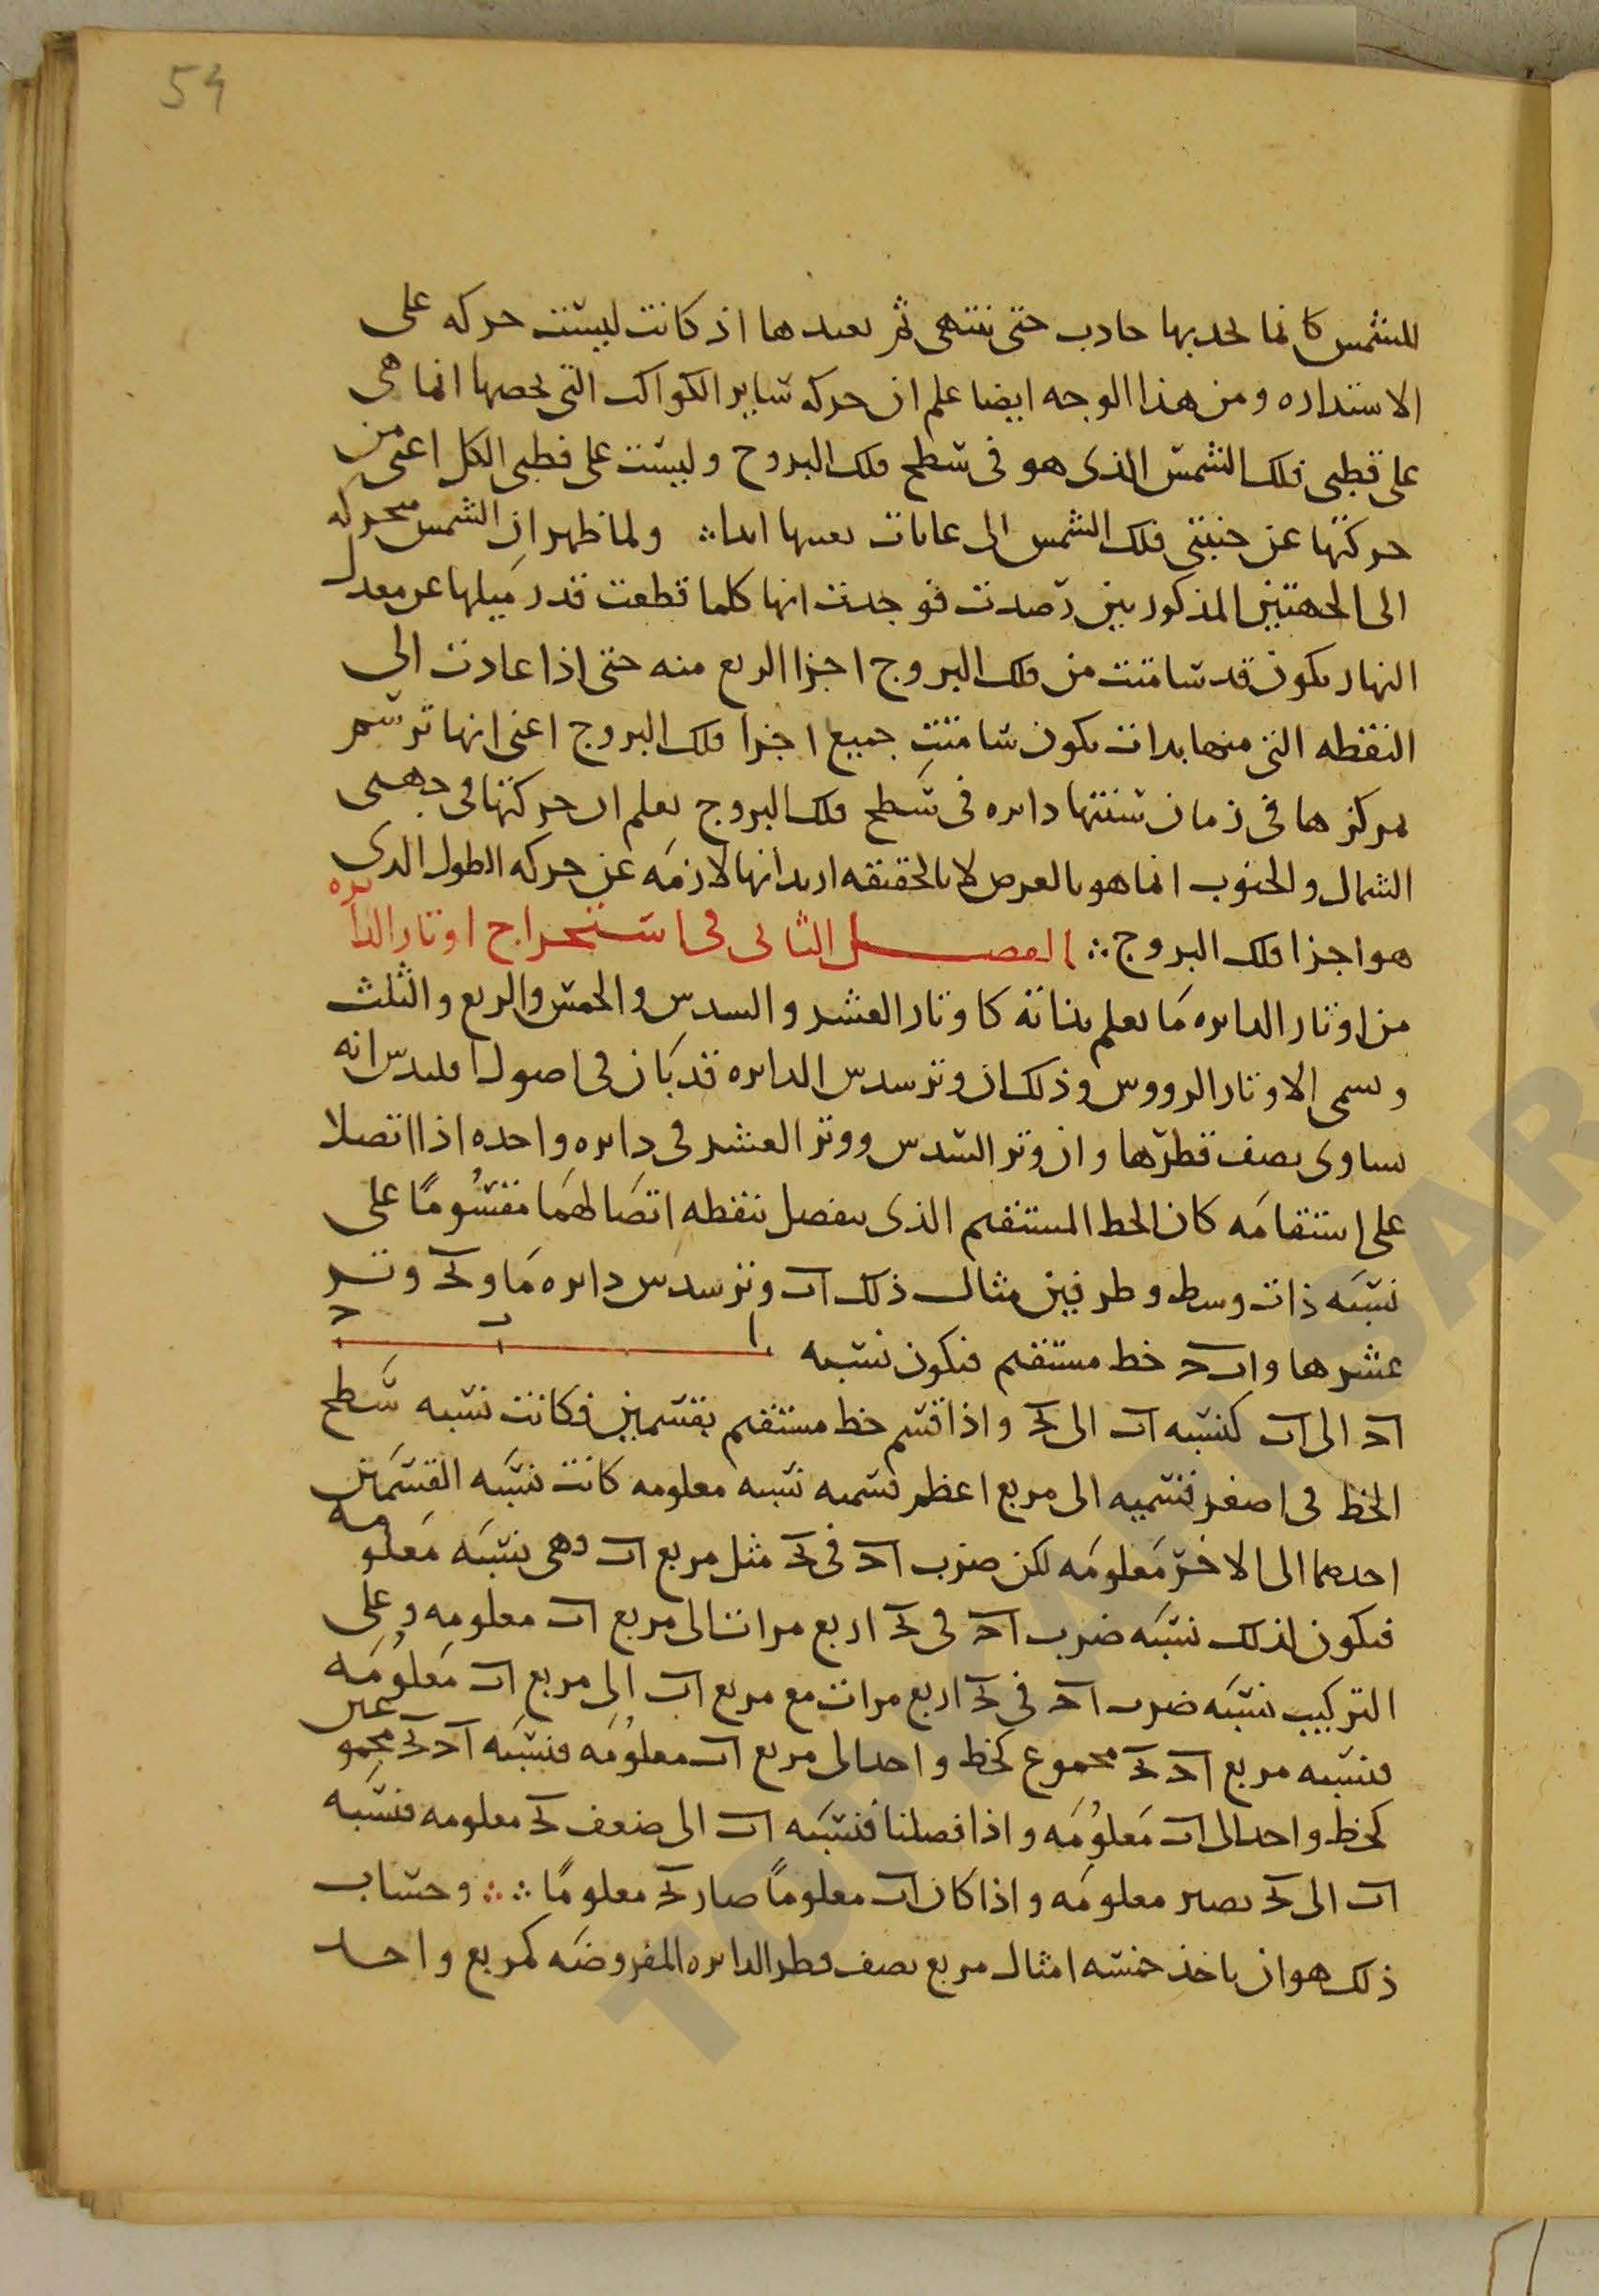 54
للشمس كانما يجذبها جاذب حتى تنتهى ثم يعيدها اذ كانت ليست حركه على
الاستداره ومن هذا الوجه ايضا علم ان حركه ساير الكواكب التى يخصها انما هى
على قطبى فلك الشمس الذى هو فى سطح فلك البروج وليست على قطبى الكل اعنى من
حركتها عن جنبتى فلك الشمس الى غايات بعينها ابدا ولما ظهر ان الشمس متحركه
الى الجهتين المذكورتين رصدت فوجدت انها كلما قطعت قدر ميلها عن معدل
النهار يكون قد سامتت من فلك البروج اجزا الربع منه حتى اذا عادت الى
النقطه التى منها بدات يكون سامتت جميع اجزا فلك البروج اعنى انها ترسم
مركزها فى زمان سنتها دايره فى سطح فلك البروج يعلم ان حركتها فى جهتى
الشمال والجنوب انما هو بالعرض لا بالحقيقه اريد انها لازمه عن حركه الطول الذى
هو اجزا فلك البروج الفصل الثانى فى استخراج اوتار الدايره
من اوتار الدايره ما يعلم بذاته كاوتار العشر والسدس والخمس والربع والثلث
وتسمى الاوتار الرووس وذلك ان وتر سدس الدايره قد بان فى اصول اقليدس انه
يساوى نصف قطرها وان وتر السدس ووتر العشر فى دايره واحده اذا اتصلا
على استقامه كان الخط المستقيم الذى ينفصل بنقطه اتصالهما مقسوما على
نسبه ذات وسط وطرفين مثال ذلك اب وتر سدس دايره ما وبج وتر
عشرها وابج خط مستقيم فيكون نسبه
ا ب ج
اج الى اب كنسبه اب الى بج واذا قسم خط مستقيم بقسمين فكانت نسبه سطح
الخط فى اصغر قسميه الى مربع اعظم قسميه نسبه معلومه كانت نسبه القسمين
احدهما الى الاخر معلومه لكن ضرب اج فى بج مثل مربع اب وهى نسبه معلومه
فيكون لذلك نسبه ضرب اج فى بج اربع مرات الى مربع اب معلومه وعلى
التركيب نسبه ضرب اج فى بج اربع مرات مع مربع اب الى مربع اب معلومه
فنسبه مربع اج بج مجموع كخط واحد الى مربع اب معلومه فنسبه اج بج مجموعين
كخط واحد الى اب معلومه واذا فصلنا فنسبه اب الى ضعف بج معلومه فنسبه
اب الى بج يصير معلومه واذا كان اب معلوما صار بج معلوما وحساب
ذلك هو ان ياخذ خمسه امثال مربع نصف قطر الدايره المفروضه كمربع واحد
TOPKAPI SARA